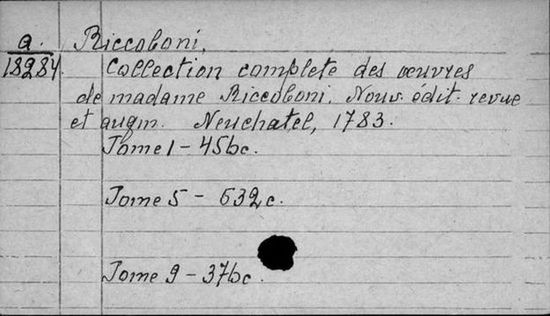 a.
18284.
Riccoboni,
Collection complete des œuvres
de madame Riccoboni. Nouv. édit. revue
et augm. Neuchatel, 1783.
Tome 1 - 456c.
Tome 5 - 632c.
Tome 9 - 376c.